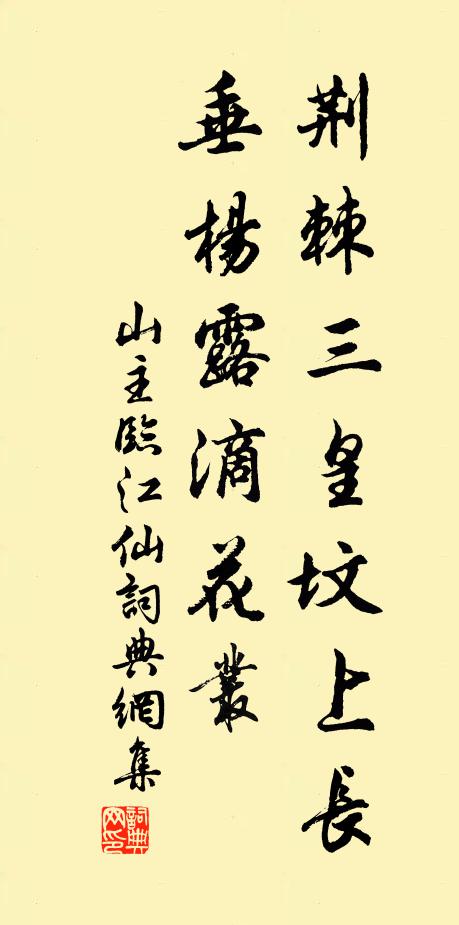 荆棘三皇墳上長
垂楊露滴花叢
山主臨江仙詞典網集
詞典網印